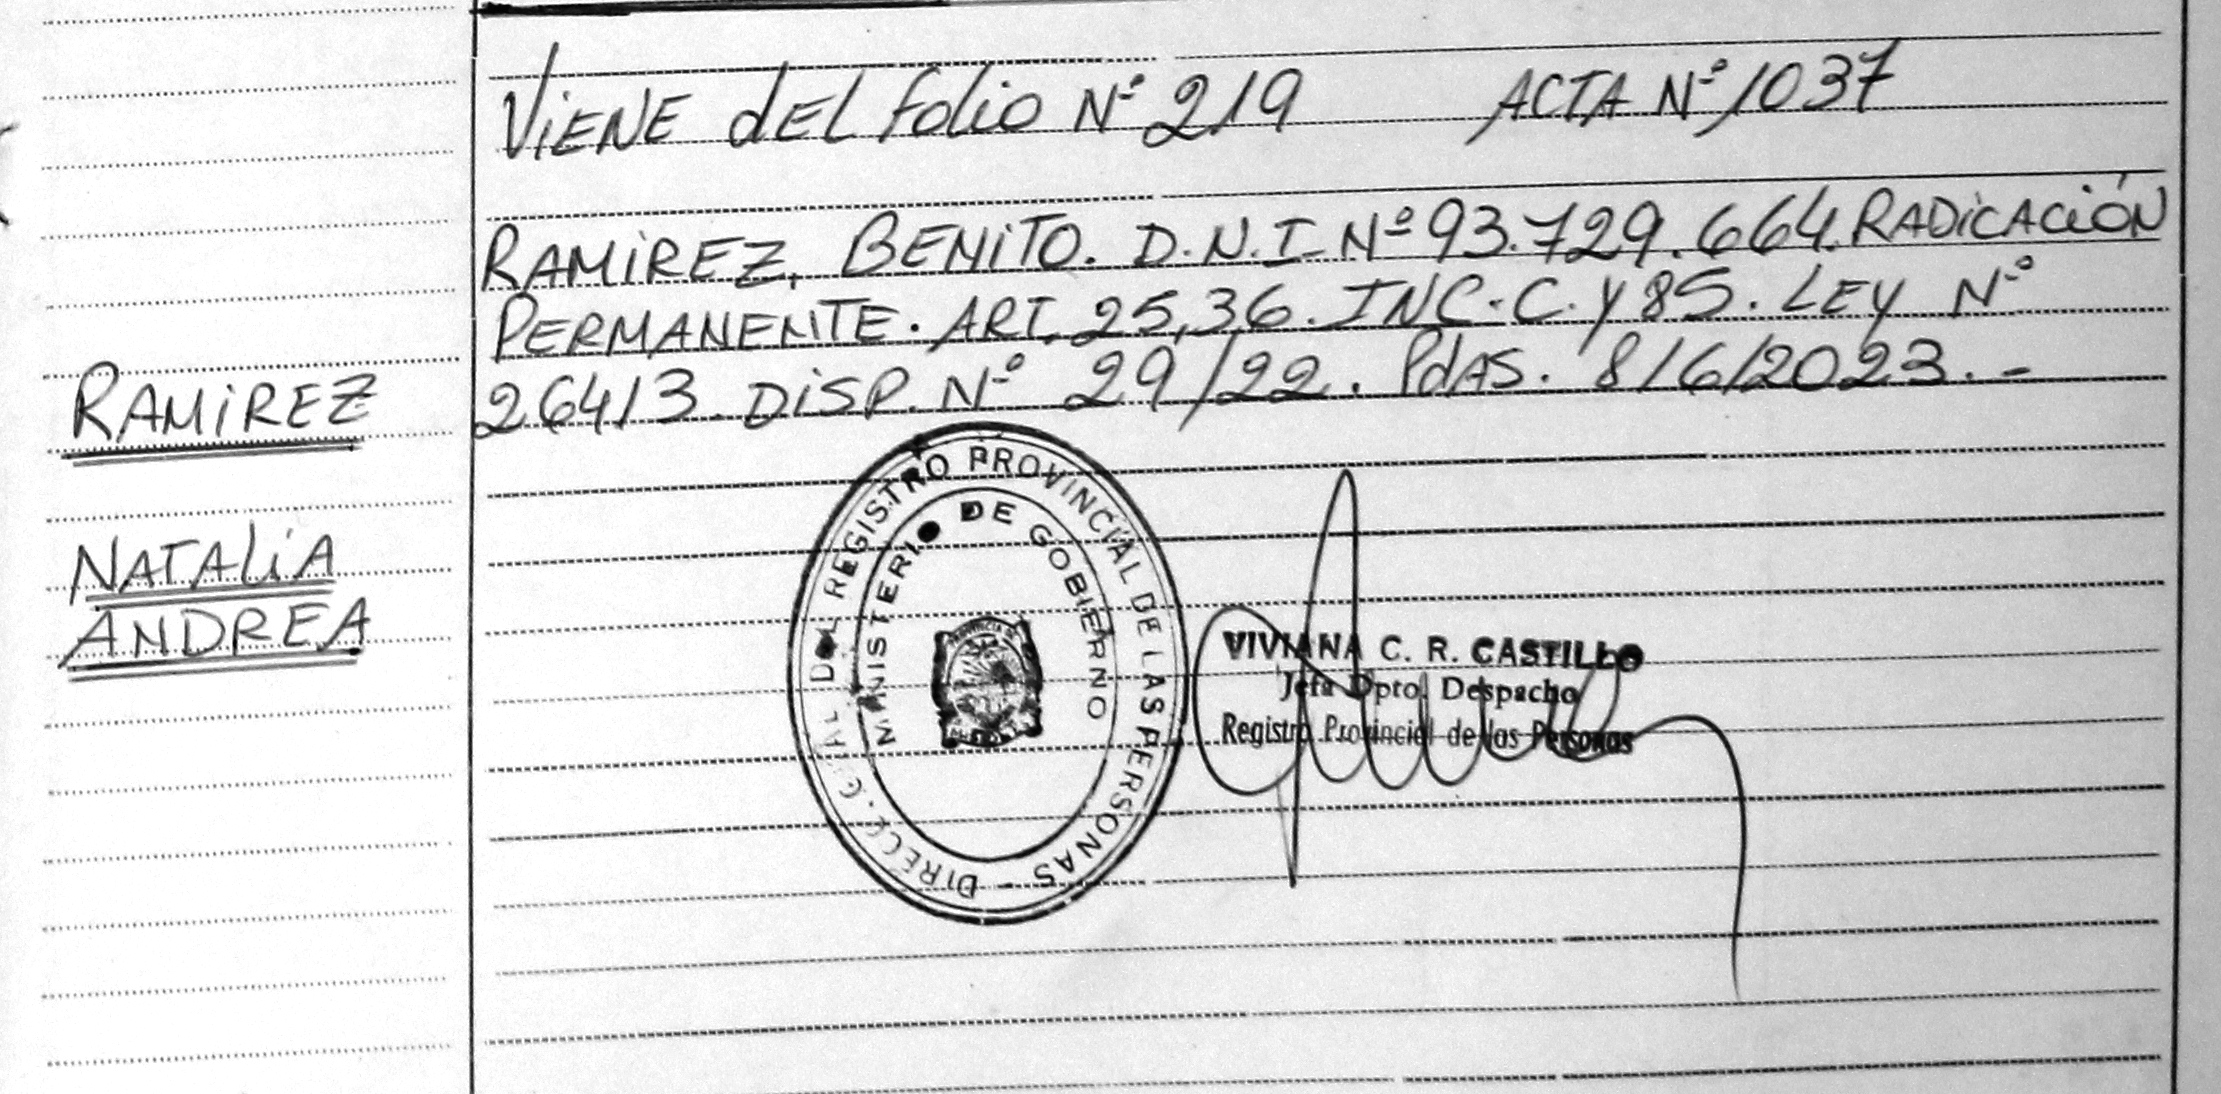 ViENE dEL folio Nº 219 ACTA Nº 1037
RAMiREZ, BENiTO. D.N.I Nº 93.729.664. RADiCACiÓN
PERMANENTE. ART. 25,36. INC. C. Y 85. LEY Nº
26413. DiSP. Nº 29/22. PdAS. 8/6/2023. -
RAMiREZ
NATALiA
ANDREA
DEL REGISTRO PROVINCIAL DE LAS PERSONAS -
MINISTERIO DE GOBIERNO
VIVIANA C. R. CASTILLO
Jefa Dpto. Despacho
Registro Provincial de las Personas